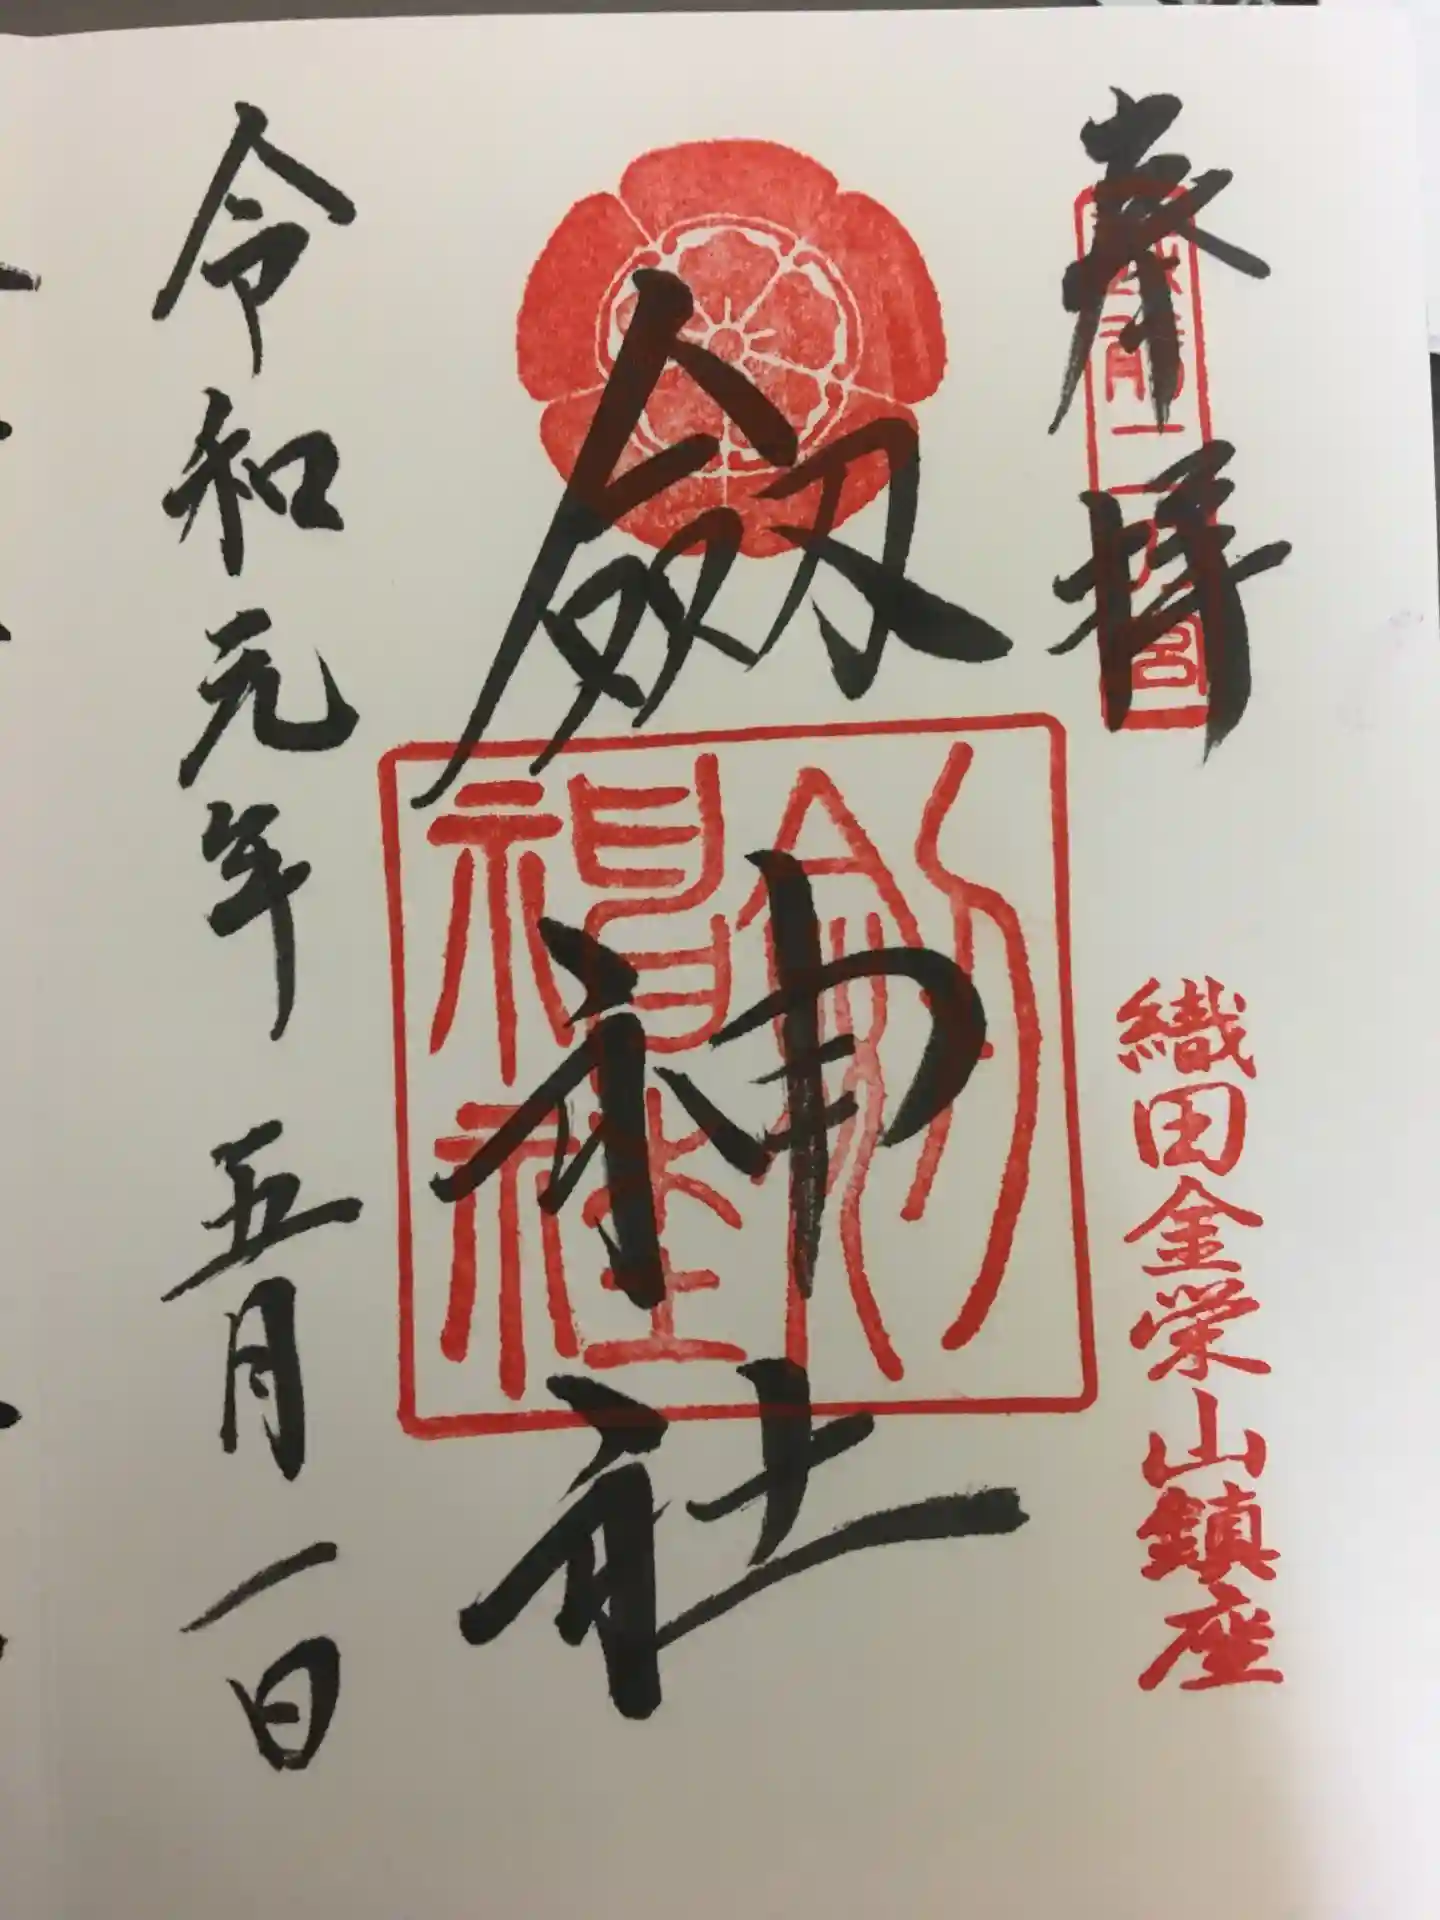 奉拝
越前二の宮
織田金栄山鎮座
劔神社
劔神社
令和元年 五月一日